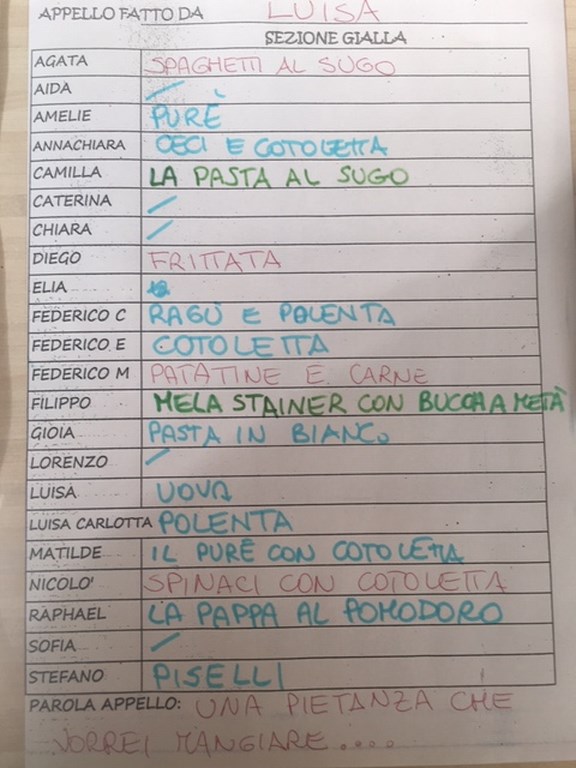 APPELLO FATTO DA LUISA
SEZIONE GIALLA
AGATA SPAGHETTI AL SUGO
AIDA /
AMELIE PURÈ
ANNACHIARA CECI E COTOLETTA
CAMILLA LA PASTA AL SUGO
CATERINA /
CHIARA /
DIEGO FRITTATA
ELIA
FEDERICO C RAGÙ E POLENTA
FEDERICO E COTOLETTA
FEDERICO M PATATINE E CARNE
FILIPPO MELA STAINER CON BUCCIA A METÀ
GIOIA PASTA IN BIANCO
LORENZO /
LUISA UOVA
LUISA CARLOTTA POLENTA
MATILDE IL PURÈ CON COTOLETTA
NICOLO' SPINACI CON COTOLETTA
RAPHAEL LA PAPPA AL POMODORO
SOFIA /
STEFANO PISELLI
PAROLA APPELLO: UNA PIETANZA CHE
VORREI MANGIARE....